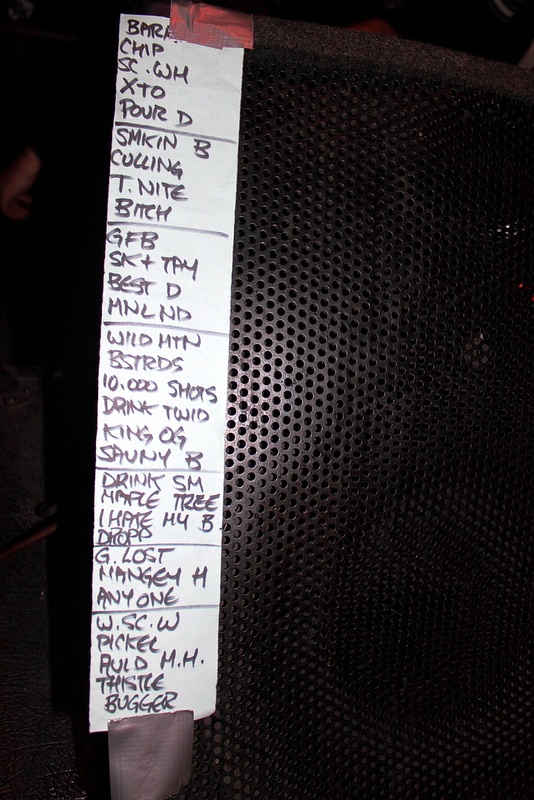 BARR
CHIP
SC.WH
XTO
POUR D
SMKIN B
CULLING
T.NITE
BITCH
GFB
SK+TAY
BEST D
MNLND
WILD MTN
BSTRDS
10.000 SHOTS
DRINK TWID
KING OG
SAUNY B
DRINK SM
MAPLE TREE
I HATE MY B
DROPP
G.LOST
MANGEY H
ANYONE
W.SC.W
PICKEL
AULD M.H.
THISTLE
BUGGER